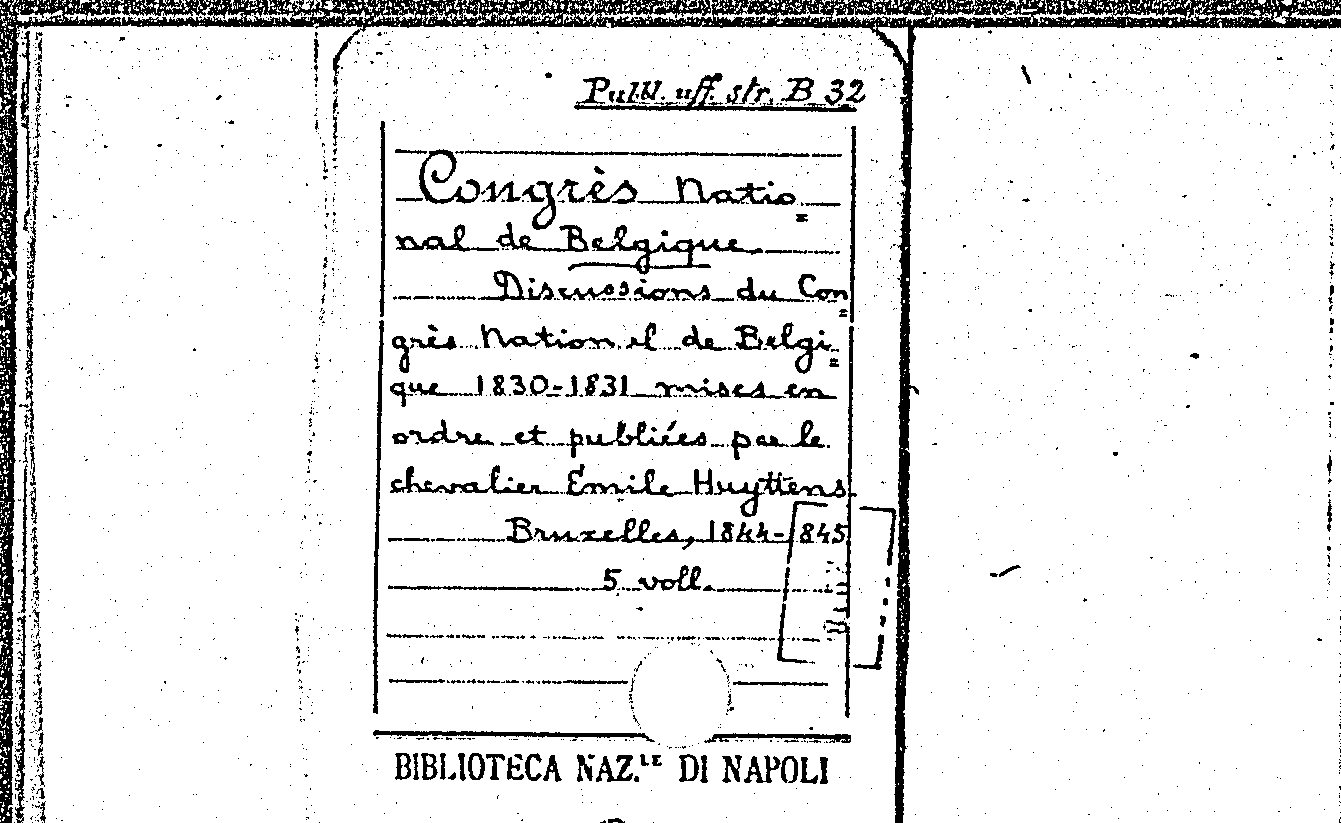 Publ. uff. str. B 32
Congrès Natio=
nal de Belgique.
Discussions du Con=
grès National de Belgi=
que 1830-1831 mises en
ordre et publiées par le
chevalier Émile Huyttens
Bruxelles, 1844-1845
5 voll.
BIBLIOTECA NAZ.LE DI NAPOLI